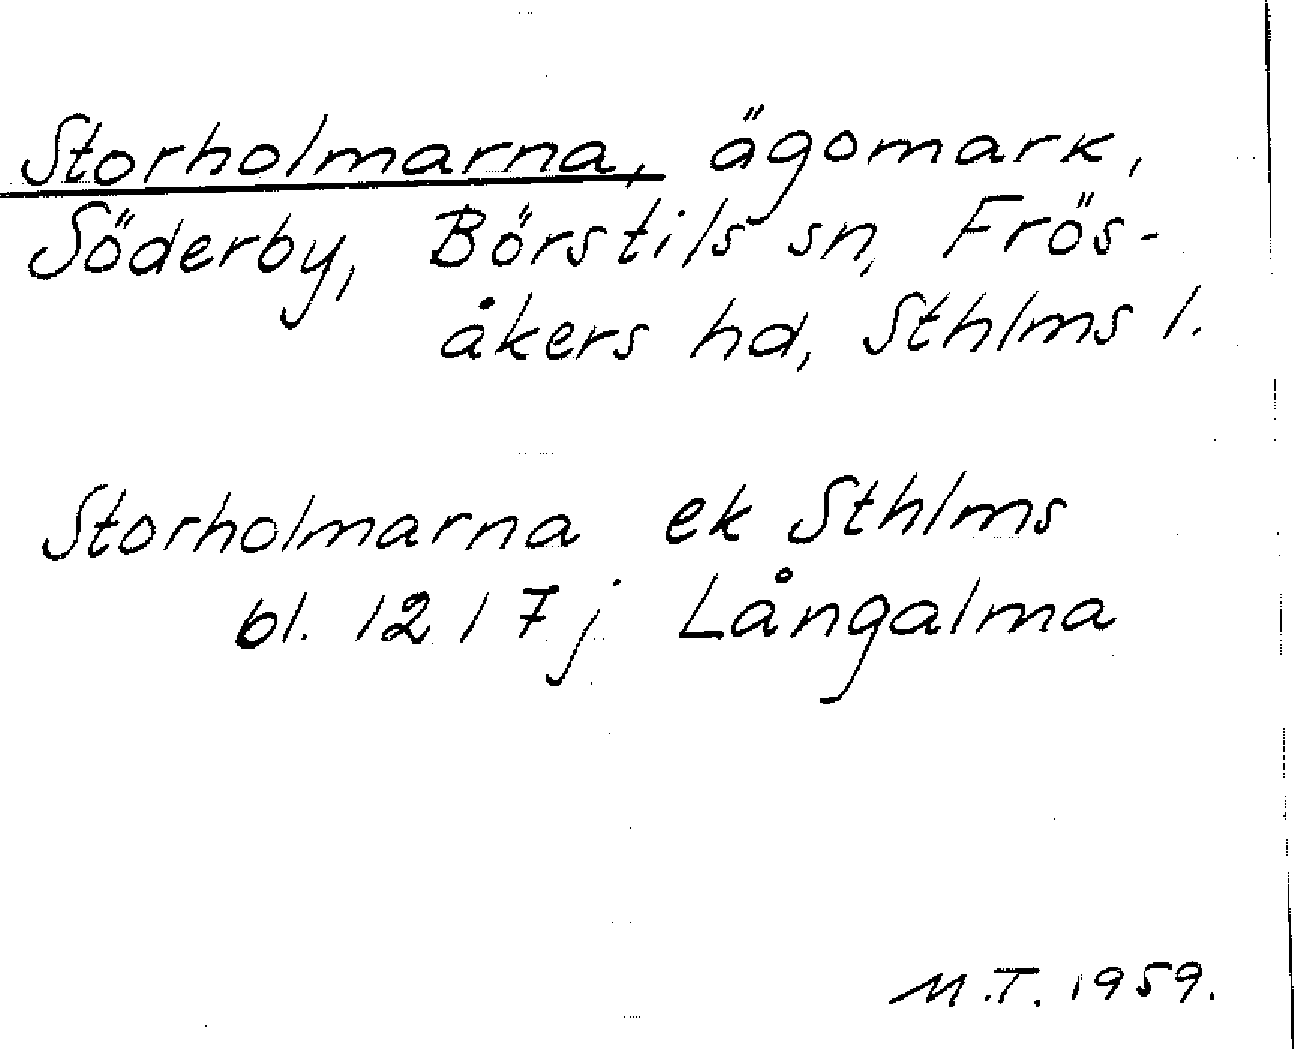 Storholmarna, ägomark,
Söderby, Börstils sn, Frös-
åkers hd, Sthlms l.
Storholmarna ek Sthlms
bl. 12 I 7 j Långalma
M.T. 1959.